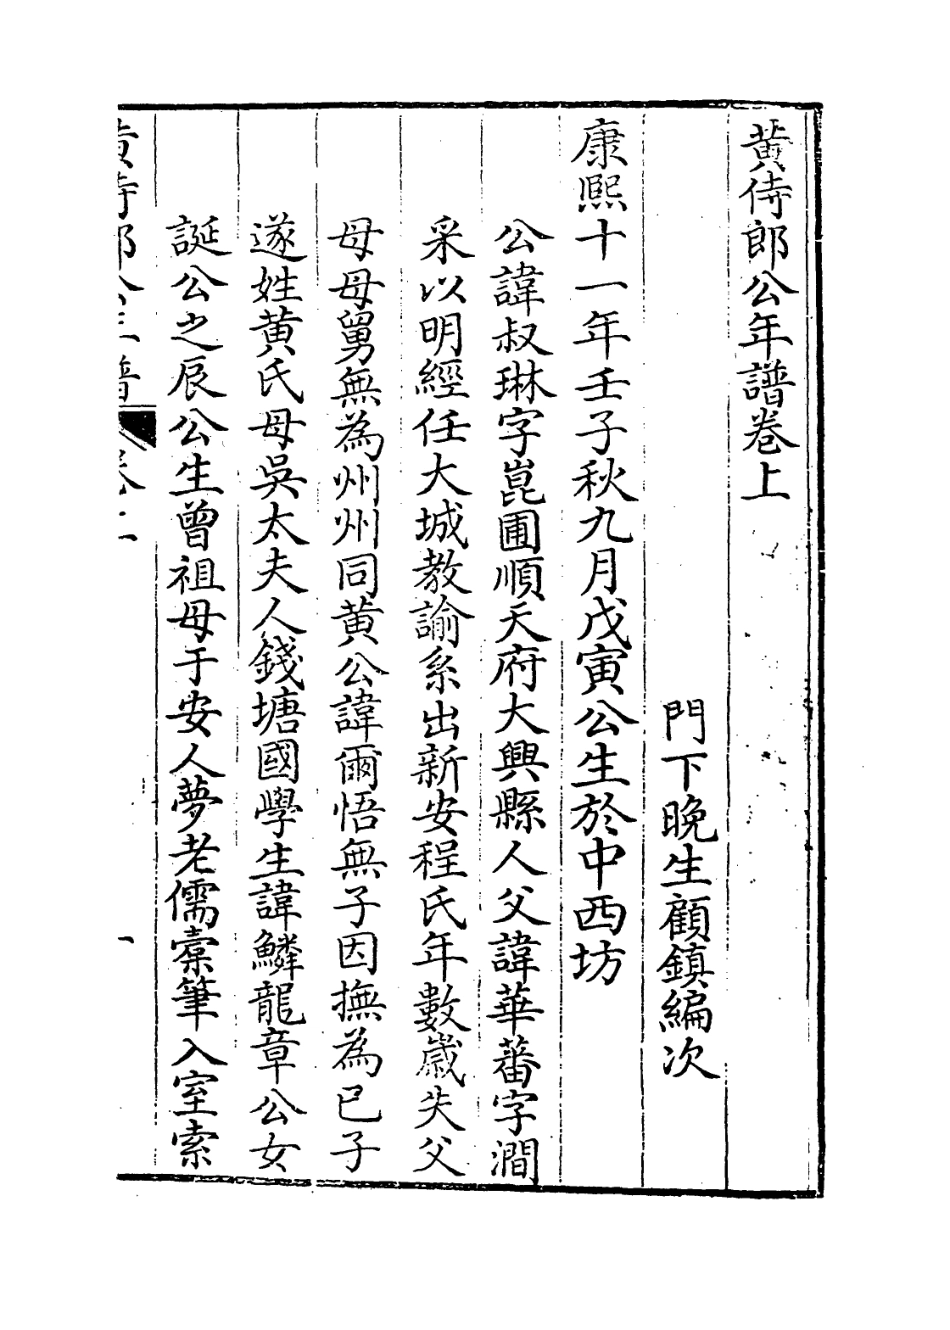 黃侍郎公年譜卷上
門下晚生顧鎮編次
康熙十一年壬子秋九月戊寅公生於中西坊
公諱叔琳字崑圃順天府大興縣人父諱華蕃字澗
采以明經任大城教諭系出新安程氏年數歲失父
母母舅無為州州同黃公諱爾悟無子因撫為已子
遂姓黃氏母吳太夫人錢塘國學生諱鱗龍章公女
誕公之辰公生曾祖母于安人夢老儒櫜筆入室索